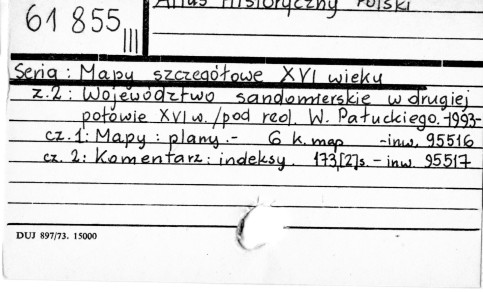 Atlas Historyczny Polski
61 855 III
Seria: Mapy szczegółowe XVI wieku
z.2: Województwo sandomierskie w drugiej
połowie XVI w. /pod red. W. Pałuckiego.-1993-
cz. 1: Mapy: plany.- 6 k. map -inw. 95516
cz. 2: Komentarz: indeksy. 173,[2]s. - inw. 95517
DUJ 897/73. 15000